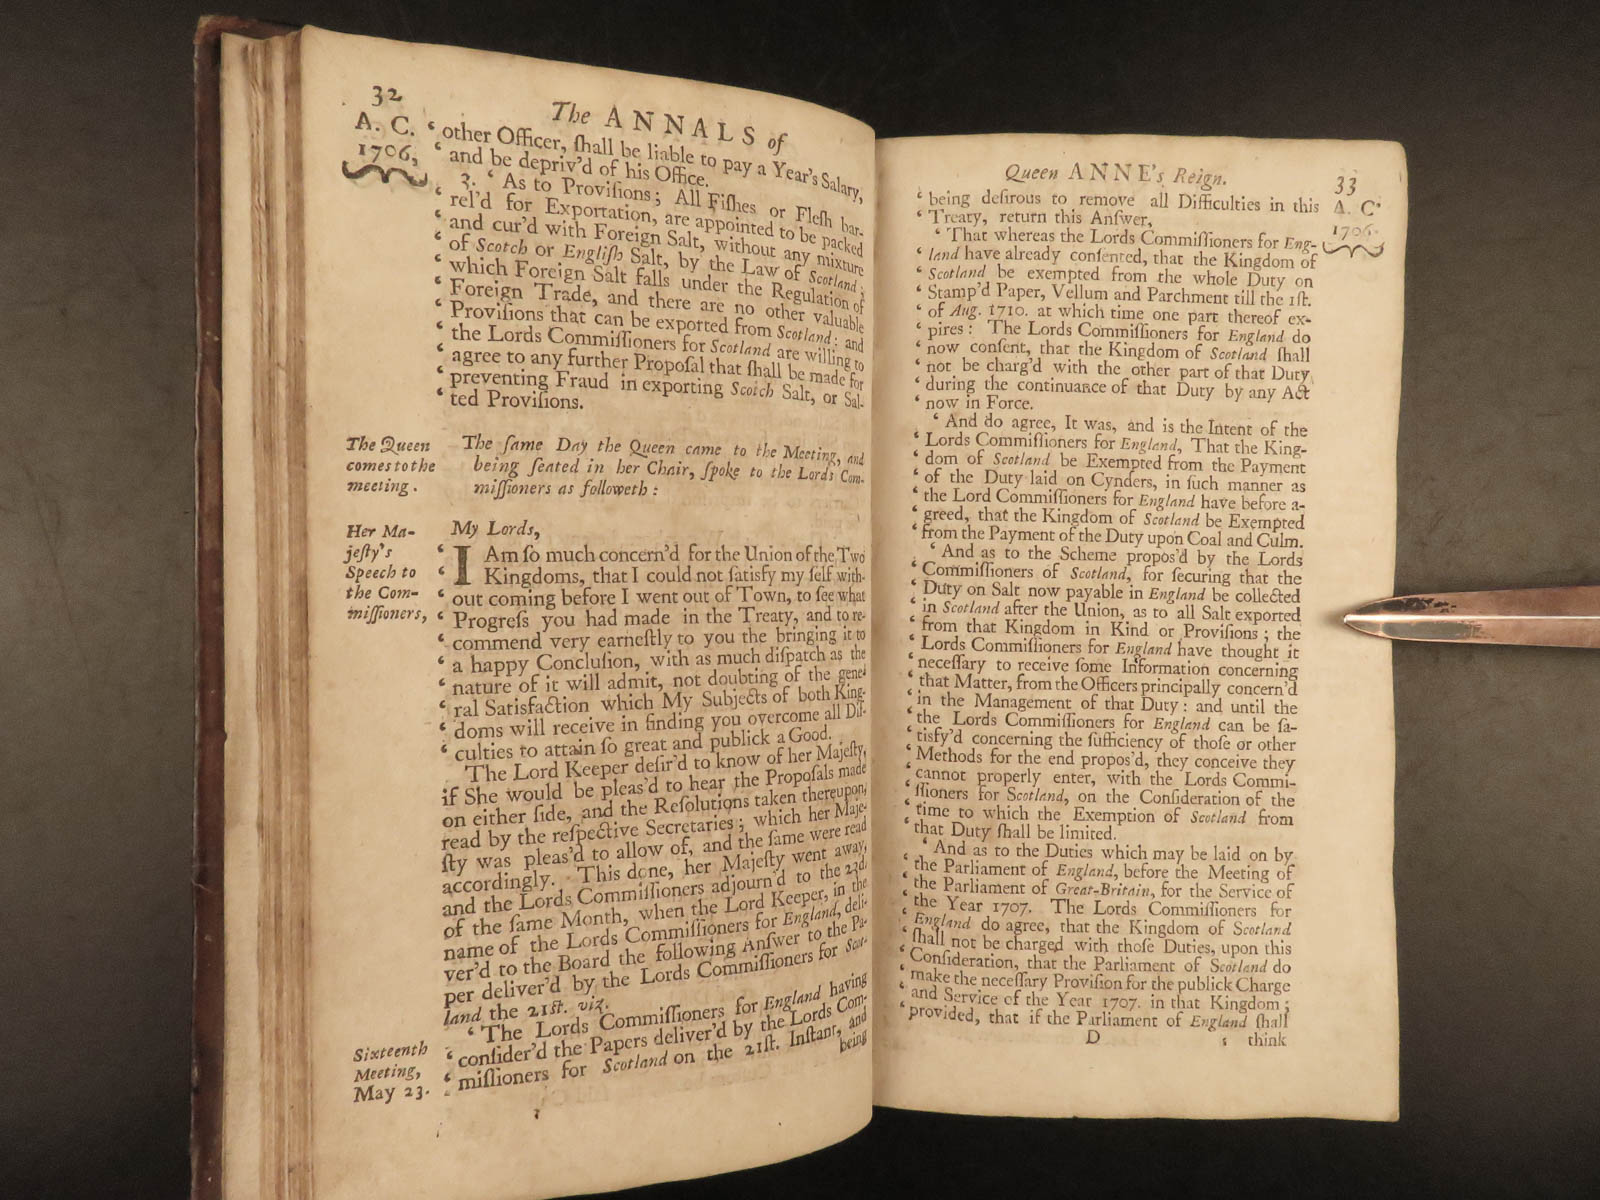 32
The ANNALS of
A. C.
1706,
‘ other Officer, ſhall be liable to pay a Year's Salary,
‘ and be depriv'd of his Office.
3. ‘ As to Proviſions; All Fiſhes or Fleſh bar-
‘ rel'd for Exportation, are appointed to be packed
‘ and cur'd with Foreign Salt, without any mixture
‘ of Scotch or Engliſh Salt, by the Law of Scotland;
‘ which Foreign Salt falls under the Regulation of
‘ Foreign Trade, and there are no other valuable
‘ Proviſions that can be exported from Scotland: and
‘ the Lords Commiſſioners for Scotland are willing to
‘ agree to any further Propoſal that ſhall be made for
‘ preventing Fraud in exporting Scotch Salt, or Sal-
‘ ted Proviſions.
The Queen
comes to the
meeting.
The ſame Day the Queen came to the Meeting, and
being ſeated in her Chair, ſpoke to the Lords Com-
miſſioners as followeth:
Her Ma-
jeſty's
Speech to
the Com-
miſſioners,
My Lords,
‘ I Am ſo much concern'd for the Union of the Two
‘ Kingdoms, that I could not ſatisfy my ſelf with-
‘ out coming before I went out of Town, to ſee what
‘ Progreſs you had made in the Treaty, and to re-
‘ commend very earneſtly to you the bringing it to
‘ a happy Concluſion, with as much diſpatch as the
‘ nature of it will admit, not doubting of the gene-
‘ ral Satisfaction which My Subjects of both King-
‘ doms will receive in finding you overcome all Diffi-
‘ culties to attain ſo great and publick a Good.
The Lord Keeper deſir'd to know of her Majeſty,
if She would be pleas'd to hear the Propoſals made
on either ſide, and the Reſolutions taken thereupon,
read by the reſpective Secretaries; which her Maje-
ſty was pleas'd to allow of, and the ſame were read
accordingly. This done, her Majeſty went away,
and the Lords Commiſſioners adjourn'd to the 23d.
of the ſame Month, when the Lord Keeper, in the
name of the Lords Commiſſioners for England, deli-
ver'd to the Board the following Anſwer to the Pa-
per deliver'd by the Lords Commiſſioners for Scot-
land the 21ſt. viz.
Sixteenth
Meeting,
May 23.
‘ The Lords Commiſſioners for England having
‘ conſider'd the Papers deliver'd by the Lords Com-
‘ miſſioners for Scotland on the 21ſt. Inſtant, and
being
Queen ANNE's Reign.
33
A. C
1706.
‘ being deſirous to remove all Difficulties in this
‘ Treaty, return this Anſwer,
‘ That whereas the Lords Commiſſioners for Eng-
‘ land have already conſented, that the Kingdom of
‘ Scotland be exempted from the whole Duty on
‘ Stamp'd Paper, Vellum and Parchment till the 1ſt.
‘ of Aug. 1710. at which time one part thereof ex-
‘ pires: The Lords Commiſſioners for England do
‘ now conſent, that the Kingdom of Scotland ſhall
‘ not be charg'd with the other part of that Duty
‘ during the continuance of that Duty by any Act
‘ now in Force.
‘ And do agree, It was, and is the Intent of the
‘ Lords Commiſſioners for England, That the King-
‘ dom of Scotland be Exempted from the Payment
‘ of the Duty laid on Cynders, in ſuch manner as
‘ the Lord Commiſſioners for England have before a-
‘ greed, that the Kingdom of Scotland be Exempted
‘ from the Payment of the Duty upon Coal and Culm.
‘ And as to the Scheme propos'd by the Lords
‘ Commiſſioners of Scotland, for ſecuring that the
‘ Duty on Salt now payable in England be collected
‘ in Scotland after the Union, as to all Salt exported
‘ from that Kingdom in Kind or Proviſions; the
‘ Lords Commiſſioners for England have thought it
‘ neceſſary to receive ſome Information concerning
‘ that Matter, from the Officers principally concern'd
‘ in the Management of that Duty: and until the
‘ the Lords Commiſſioners for England can be ſa-
‘ tisfy'd concerning the ſufficiency of thoſe or other
‘ Methods for the end propos'd, they conceive they
‘ cannot properly enter, with the Lords Commi-
‘ ſſioners for Scotland, on the Conſideration of the
‘ time to which the Exemption of Scotland from
‘ that Duty ſhall be limited.
‘ And as to the Duties which may be laid on by
‘ the Parliament of England, before the Meeting of
‘ the Parliament of Great-Britain, for the Service of
‘ the Year 1707. The Lords Commiſſioners for
‘ England do agree, that the Kingdom of Scotland
‘ ſhall not be charged with thoſe Duties, upon this
‘ Conſideration, that the Parliament of Scotland do
‘ make the neceſſary Proviſion for the publick Charge
‘ and Service of the Year 1707. in that Kingdom;
‘ provided, that if the Parliament of England ſhall
D
‘ think